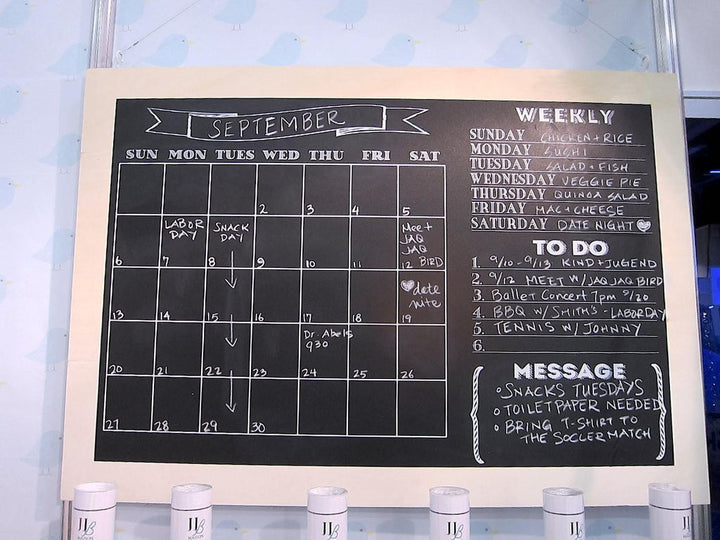 SEPTEMBER
SUN MON TUES WED THU FRI SAT
2 3 4 5
LABOR DAY
SNACK DAY
Meet JAQ JAQ BIRD
6 7 8 9 10 11 12
♥date nite
13 14 15 16 17 18 19
Dr. Abels 930
20 21 22 23 24 25 26
27 28 29 30
WEEKLY
SUNDAY CHICKEN + RICE
MONDAY SUSHI
TUESDAY SALAD + FISH
WEDNESDAY VEGGIE PIE
THURSDAY QUINOA SALAD
FRIDAY MAC + CHEESE
SATURDAY DATE NIGHT ♥
TO DO
1. 9/10 - 9/13 KIND + JUGEND
2. 9/12 MEET W/ JAQ JAQ BIRD
3. Ballet Concert 7pm 9/20
4. BBQ W/ SMITH'S - LABOR DAY
5. TENNIS W/ JOHNNY
6.
MESSAGE
• SNACKS TUESDAYS
• TOILET PAPER NEEDED
• BRING T-SHIRT TO
THE SOCCER MATCH
JJB
JJB
JJB
JJB
JJB
JJB